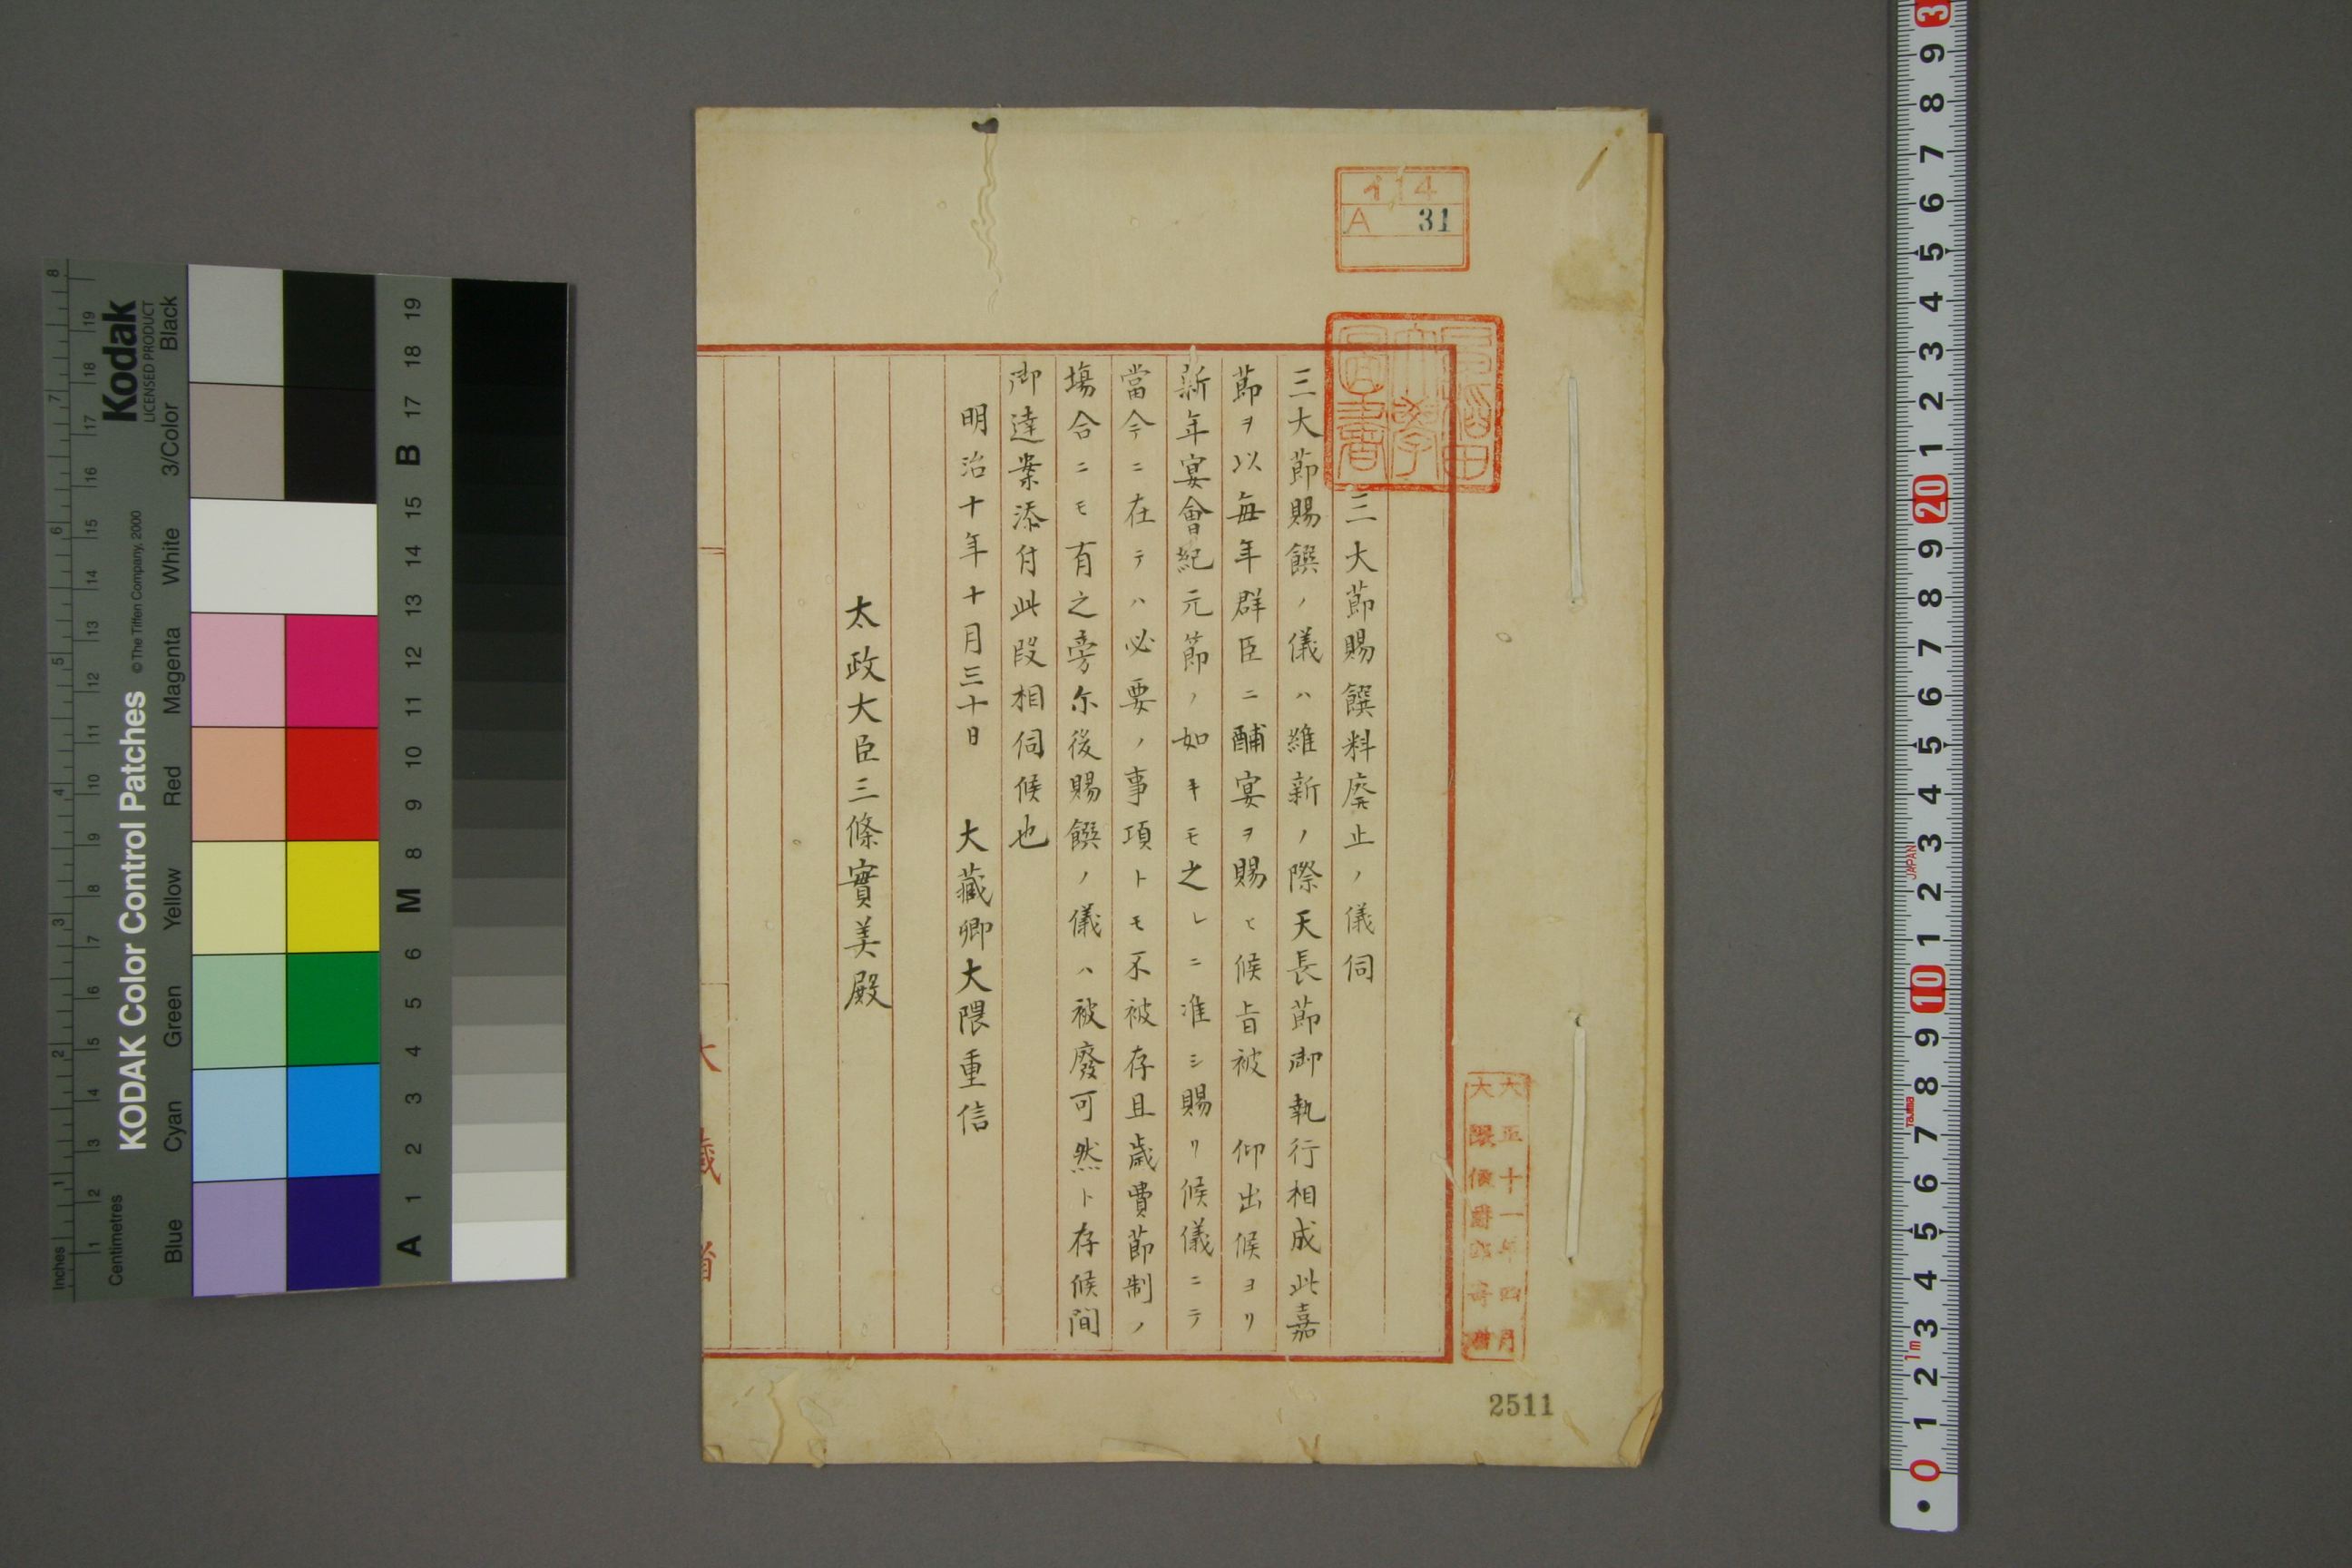 三大節賜饌料廃止ノ儀伺
三大節賜饌ノ儀ハ維新ノ際天長節御執行相成此嘉
節ヲ以毎年群臣ニ酺宴ヲ賜ヒ候旨被 仰出候ヨリ
新年宴會紀元節ノ如キモ之レニ准シ賜リ候儀ニテ
當今ニ在テハ必要ノ事項トモ不被存且歳費節制ノ
塲合ニモ有之旁尓後賜饌ノ儀ハ被廢可然ト存候間
御達案添付此段相伺候也
明治十年十月三十日 大藏卿大隈重信
太政大臣三條實美殿
大藏省
イ14
A 31
早稲田大學圖書
大正十一年四月
大隈侯爵家寄贈
2511
KODAK Color Control Patches
© The Tiffen Company, 2000
Kodak
LICENSED PRODUCT
Inches
Centimetres
Blue Cyan Green Yellow Red Magenta White 3/Color Black
1 2 3 4 5 6 7 8
1 2 3 4 5 6 7 8 9 10 11 12 13 14 15 16 17 18 19
A 1 2 3 4 5 6 M 8 9 10 11 12 13 14 15 B 17 18 19
0 1 2 3 4 5 6 7 8 9 10 1 2 3 4 5 6 7 8 9 20 1 2 3 4 5 6 7 8 9 3
1m
Tajima
JAPAN